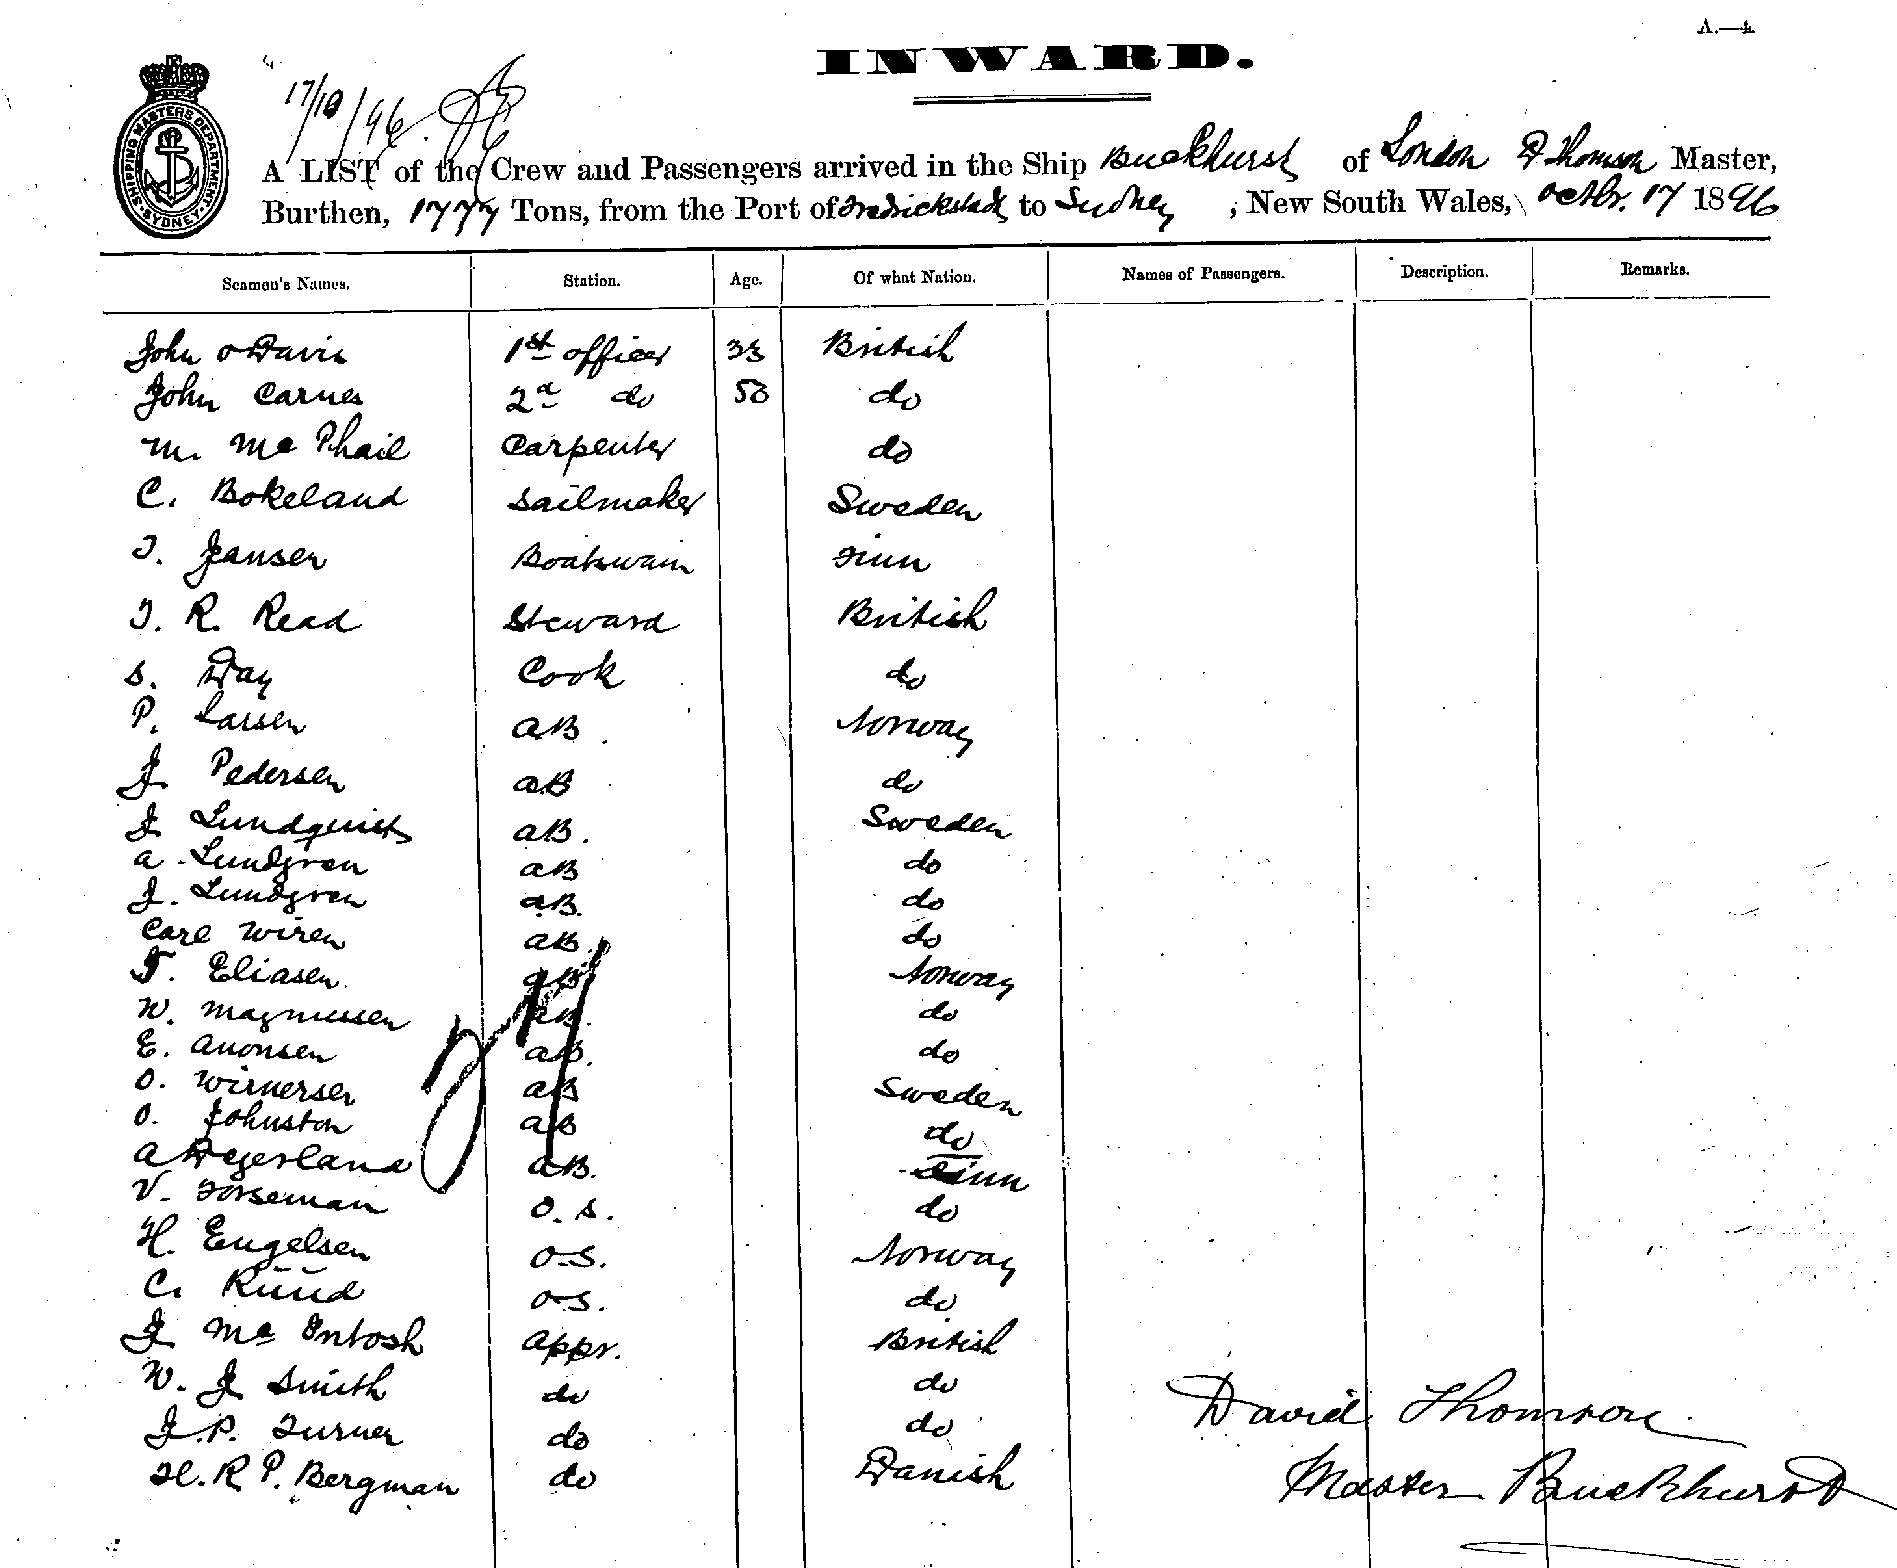 A.—4
INWARD.
17/10/96.
SHIPPING MASTERS DEPARTMENT SYDNEY
A LIST of the Crew and Passengers arrived in the Ship Buckhurst of London D Thomson Master,
Burthen, 1777 Tons, from the Port of Fredrickstadt to Sydney, New South Wales, Octbr. 17 1896
Seamen's Names. Station. Age. Of what Nation. Names of Passengers. Description. Remarks.
John O Davis 1st officer 33 British
John Carnes 2d do 50 do
M. Mc Phail Carpenter do
C. Bokeland Sailmaker Sweden
J. Jansen Boatswain Finn
J. R. Read Steward British
S. Day Cook do
P. Larsen AB. Norway
J Pedersen AB do
J Lundquist AB. Sweden
A. Lundgren AB do
J. Lundgren AB. do
Carl Wiren AB. do
T. Eliasen AB Norway
W. Magnussen AB. do
E. Anonsen AB. do
O. Wirnersen AB Sweden
O. Johnston AB do
A Degerland AB. Finn
V. Forseman O.S. do
H. Engelsen O.S. Norway
C. Ruud O.S. do
J Mc Intosh Appr. British
W. J Smith do do
J. P. Turner do do
H. R P. Bergman do Danish
David Thomson
Master Buckhurst